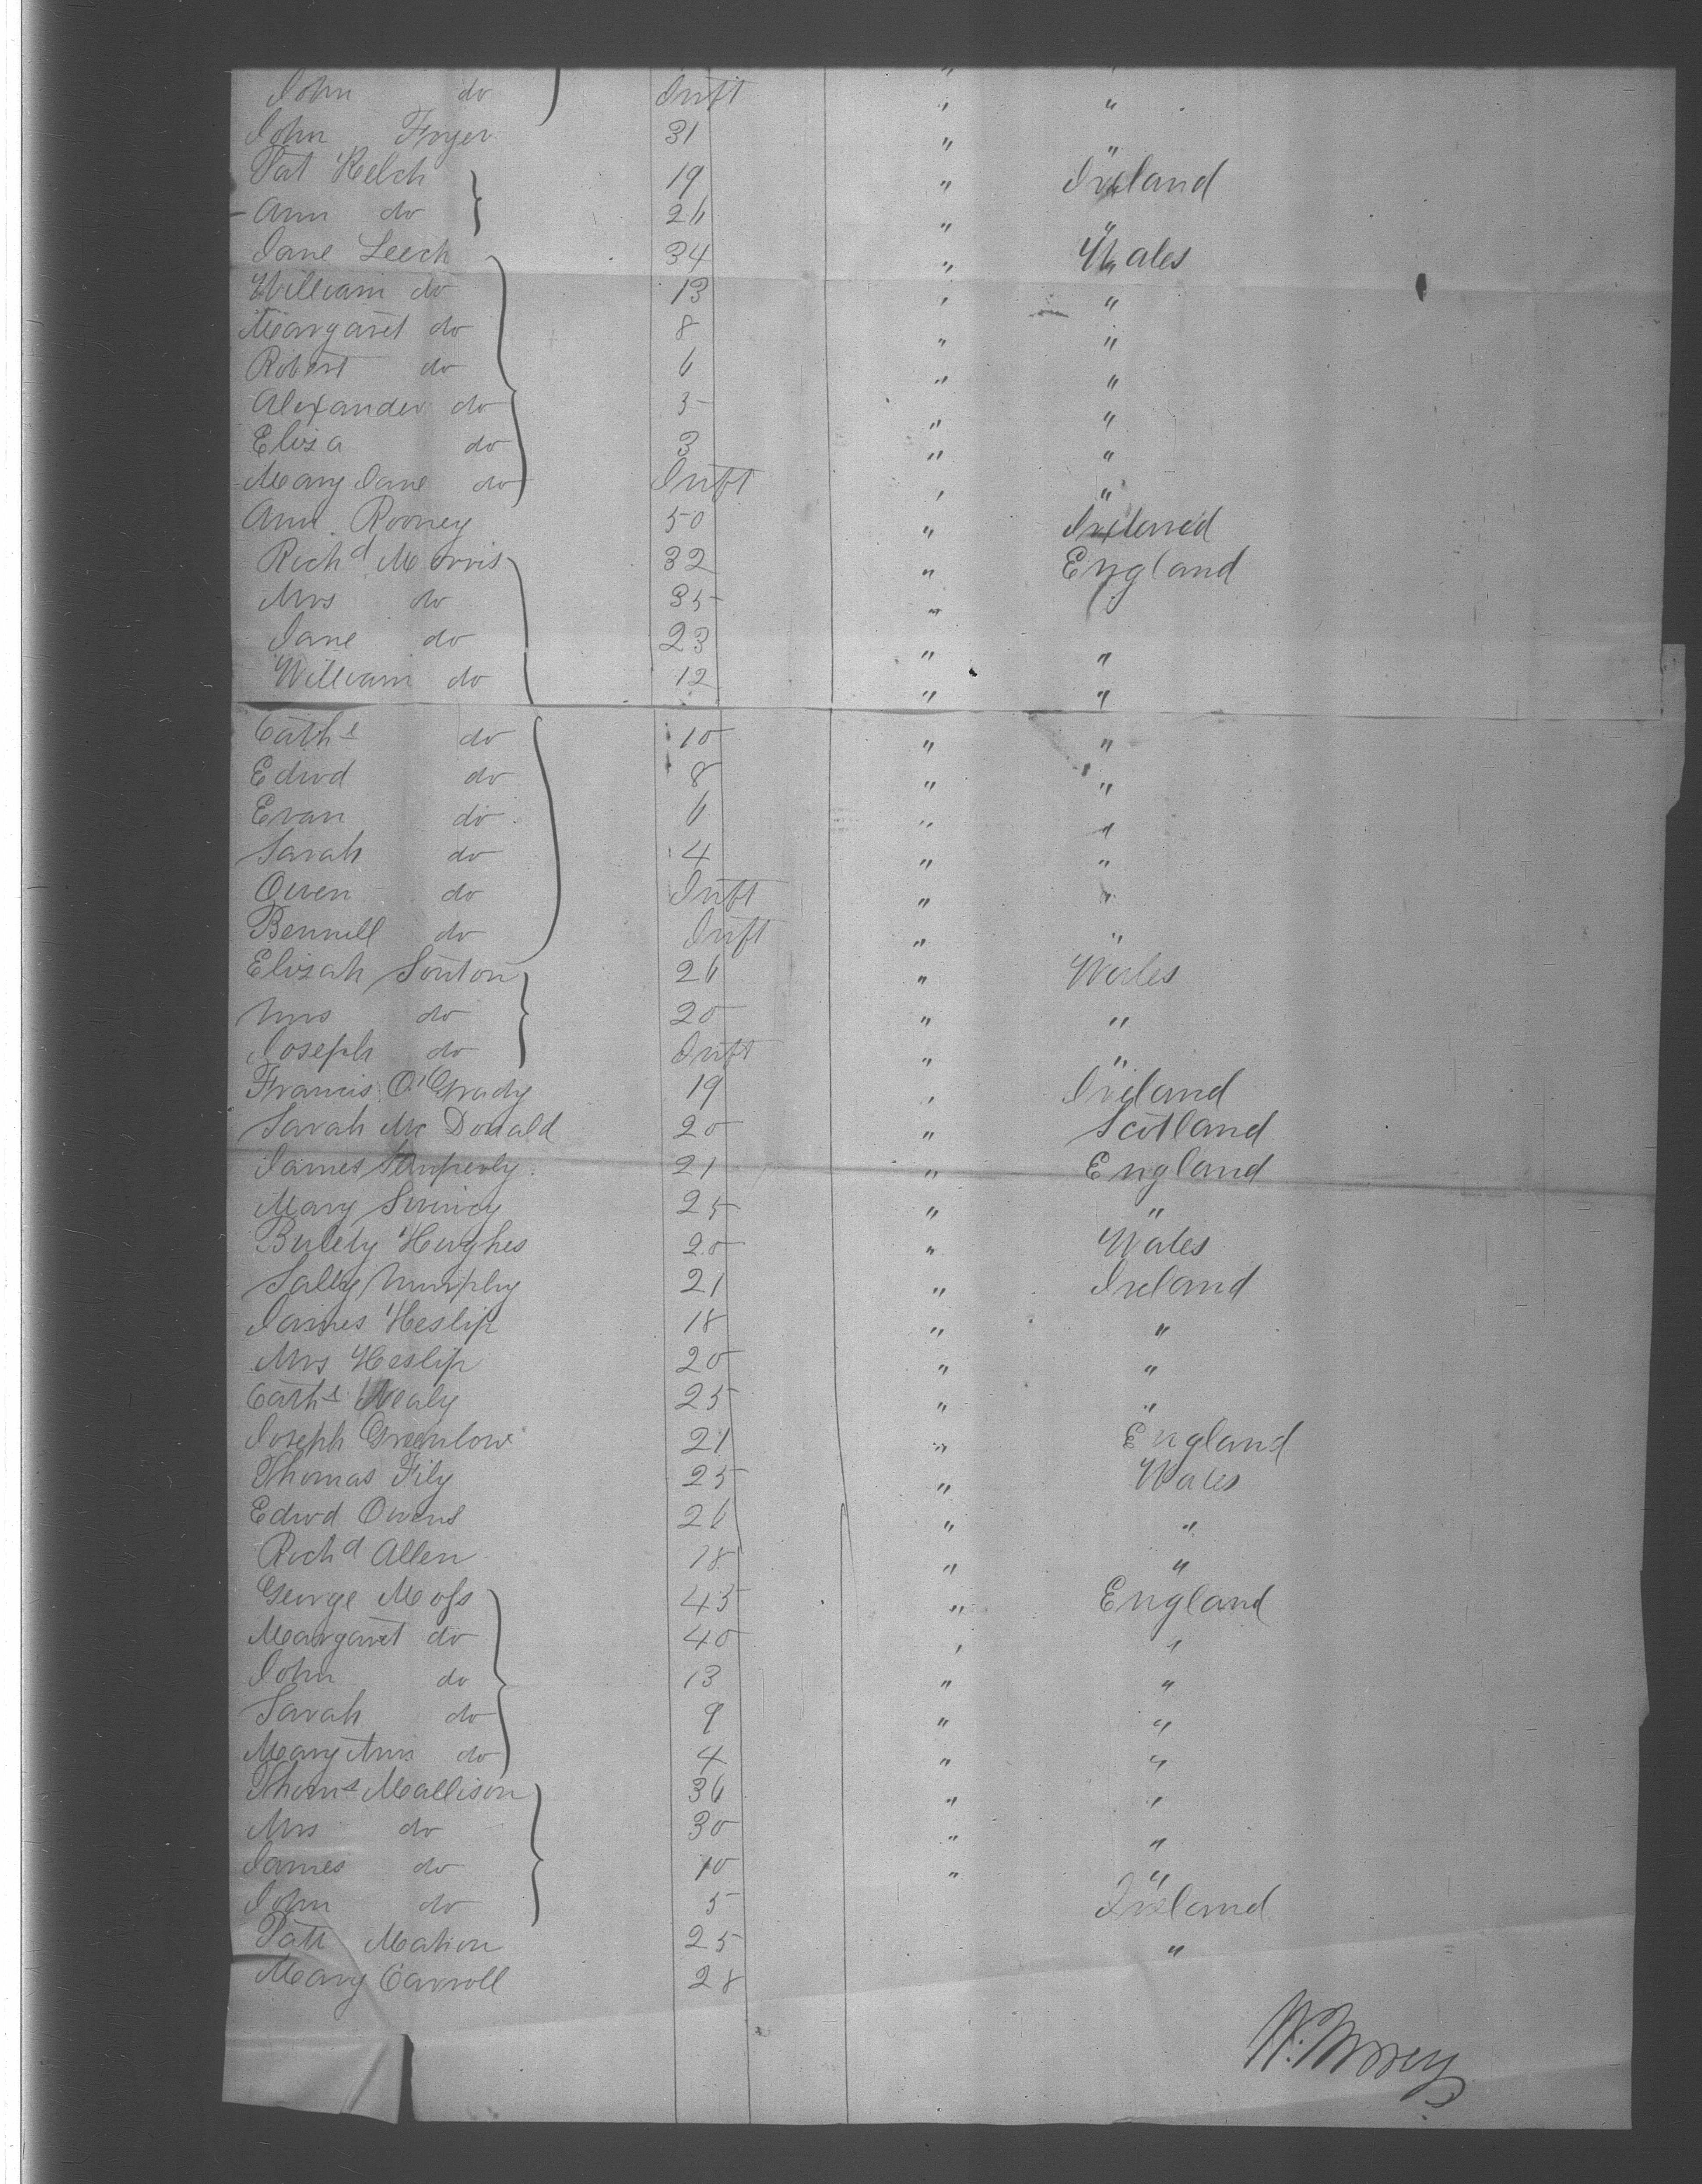 John do Inft " "
John Fryer 31 " "
Pat Kelch 19 " Ireland
Ann do 26 " "
Jane Leech 34 " Wales
William do 13 " "
Margaret do 8 " "
Robert do 6 " "
Alexander do 5 " "
Eliza do 3 " "
Mary Jane do Inft " "
Ann Rooney 50 " Ireland
Richd Morris 32 " England
Mrs do 35 "
Jane do 23 " "
William do 12 " "
Cathe do 10 " "
Edwd do 8 " "
Evan do 6 " "
Sarah do 4 " "
Owen do Inft " "
Bennell do Inft " "
Elizah Souton 26 " Wales
Mrs do 20 " "
Joseph do Inft " "
Francis O'Grady 19 " Ireland
Sarah Mc Donald 20 " Scotland
James 21 " England
Mary 25 " "
Hughes 20 " Wales
Sally Murphy 21 " Ireland
James Heslip 18 " "
Mrs Heslip 20 " "
Cathe Nealy 25 " "
Joseph Greenlow 21 " England
Thomas Fily 25 " Wales
Edwd Owens 26 " "
Richd Allen 18 " "
George Moss 45 " England
Margaret do 40 " "
John do 13 " "
Sarah do 9 " "
Mary Ann do 4 " "
Thoms Mallison 36 " "
Mrs do 30 " "
James do 10 " "
John do 5 Ireland
Patt Mahon 25 "
Mary Carroll 28